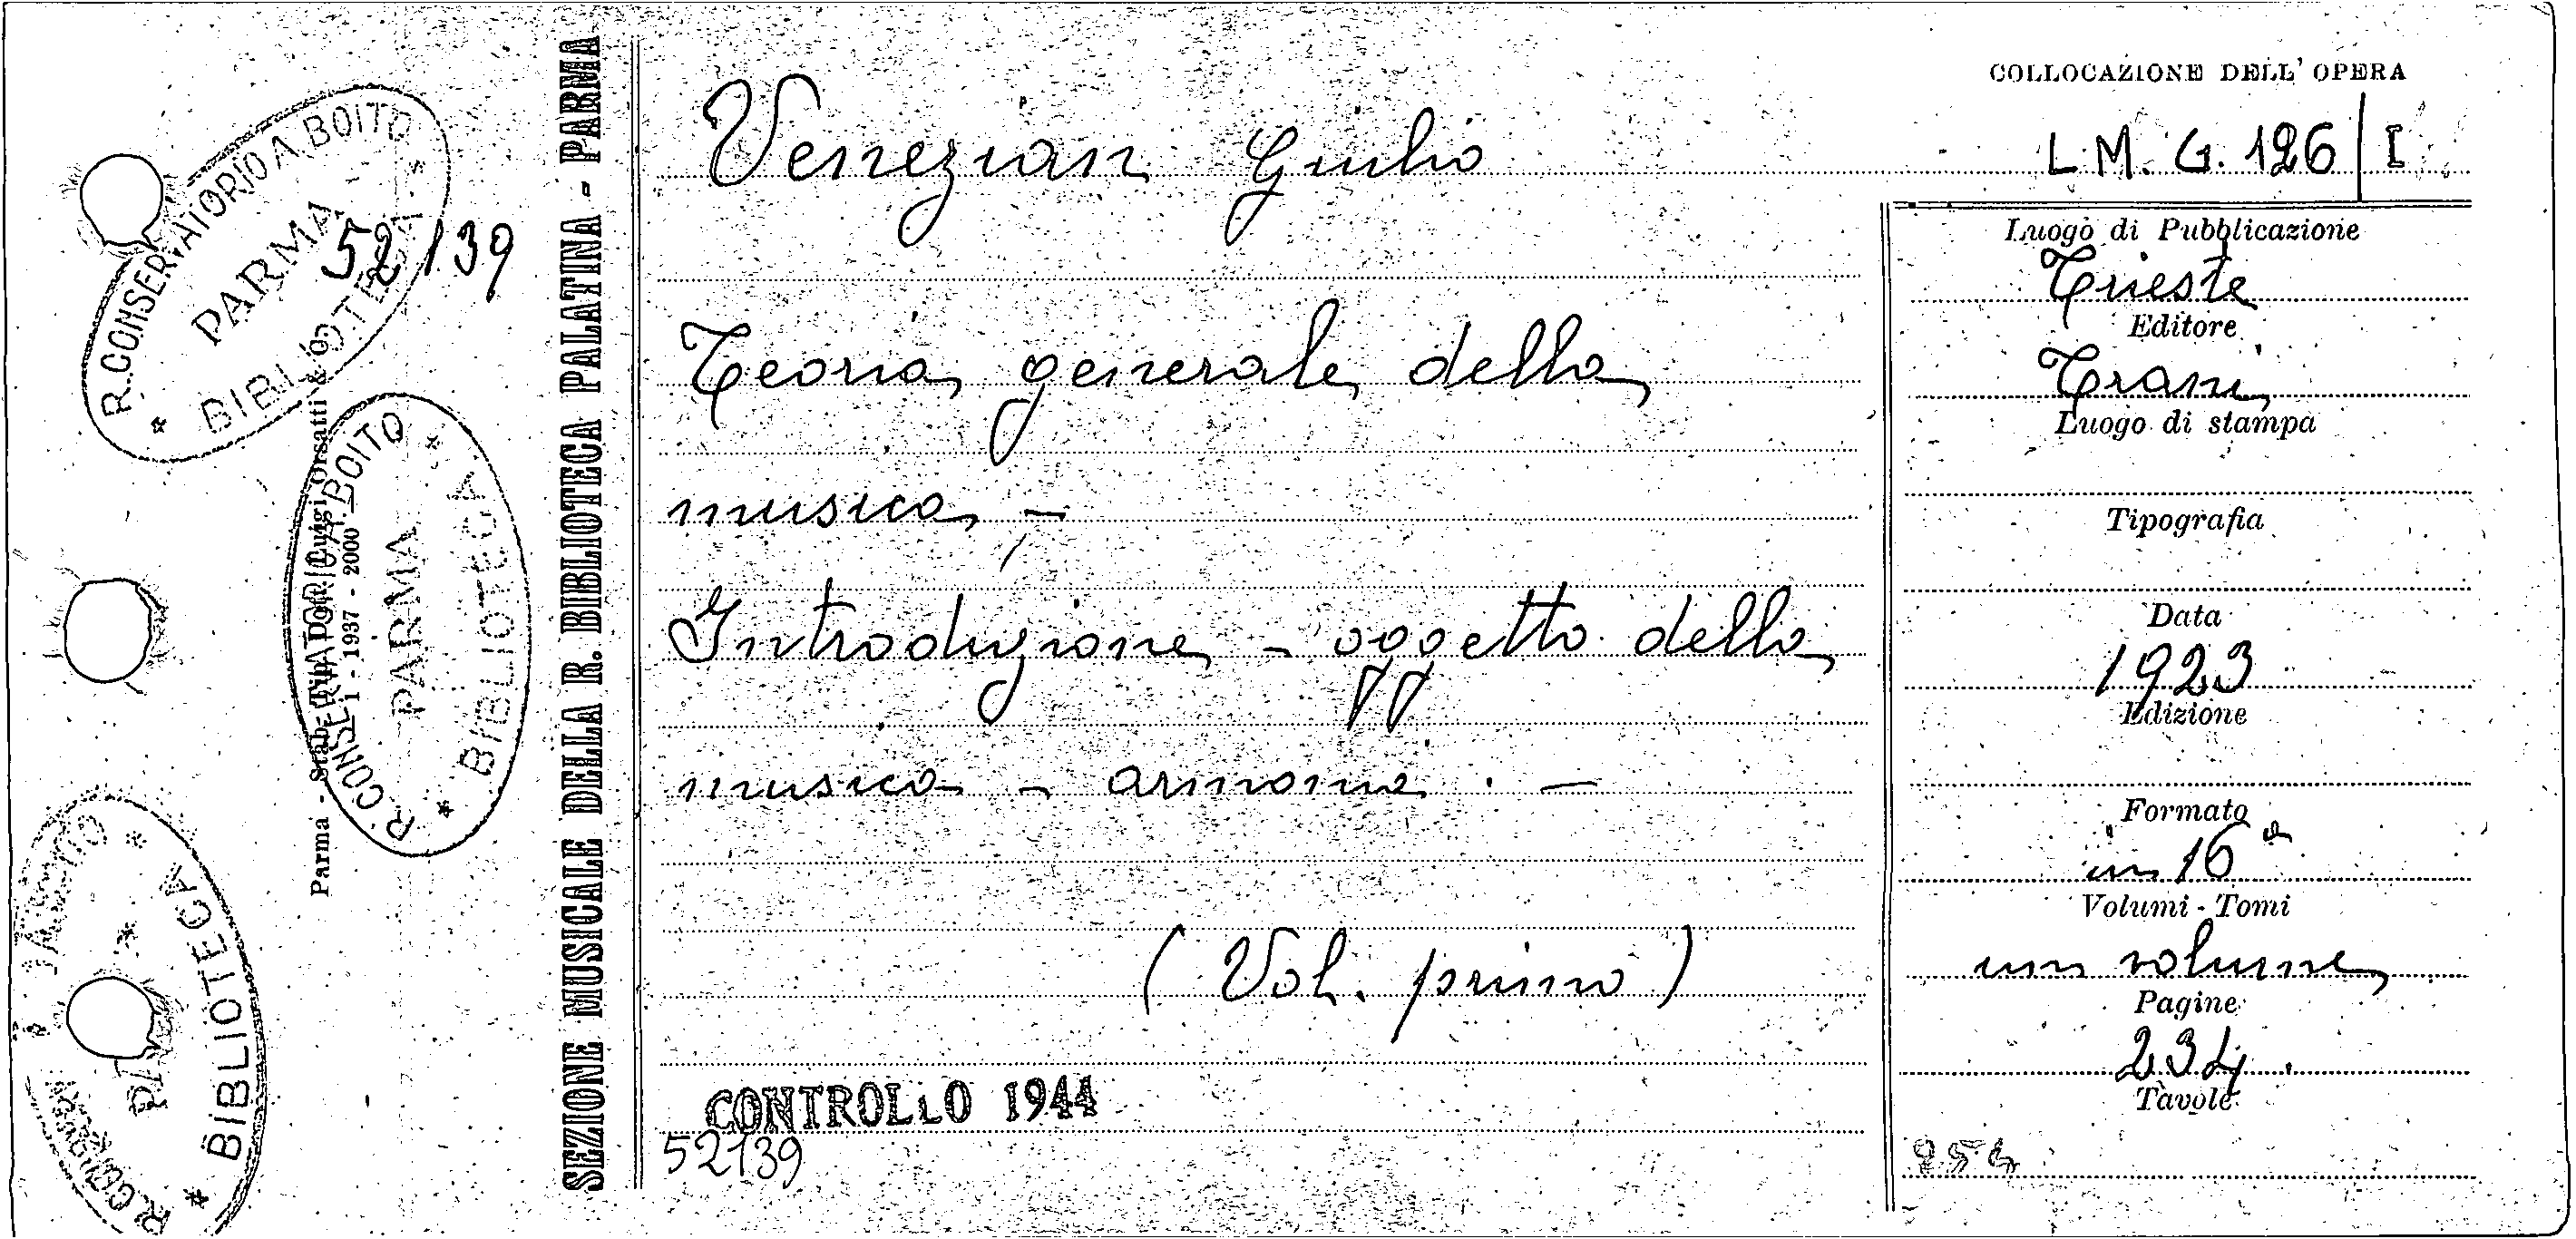 R. CONSERVATORIO A. BOITO
PARMA
BIBLIOTECA
52139
R. CONSERVATORIO A. BOITO
PARMA
BIBLIOTECA
BIBLIOTECA
Parma - Stab. Tip. Dott. Luigi Orsatti & C.
1 - 1937 - 2000
SEZIONE MUSICALE DELLA R. BIBLIOTECA PALATINA - PARMA
COLLOCAZIONE DELL' OPERA
L.M. G. 126 | I
Venezian Giulio
Teoria generale della
musica -
Introduzione - oggetto della
musica - armonia . -
(Vol. primo)
CONTROLLO 1944
52139
Luogo di Pubblicazione
Trieste
Editore
Trani
Luogo di stampa
Tipografia
Data
1923
Edizione
Formato
in 16°
Volumi - Tomi
un volume
Pagine
234.
Tavole
254